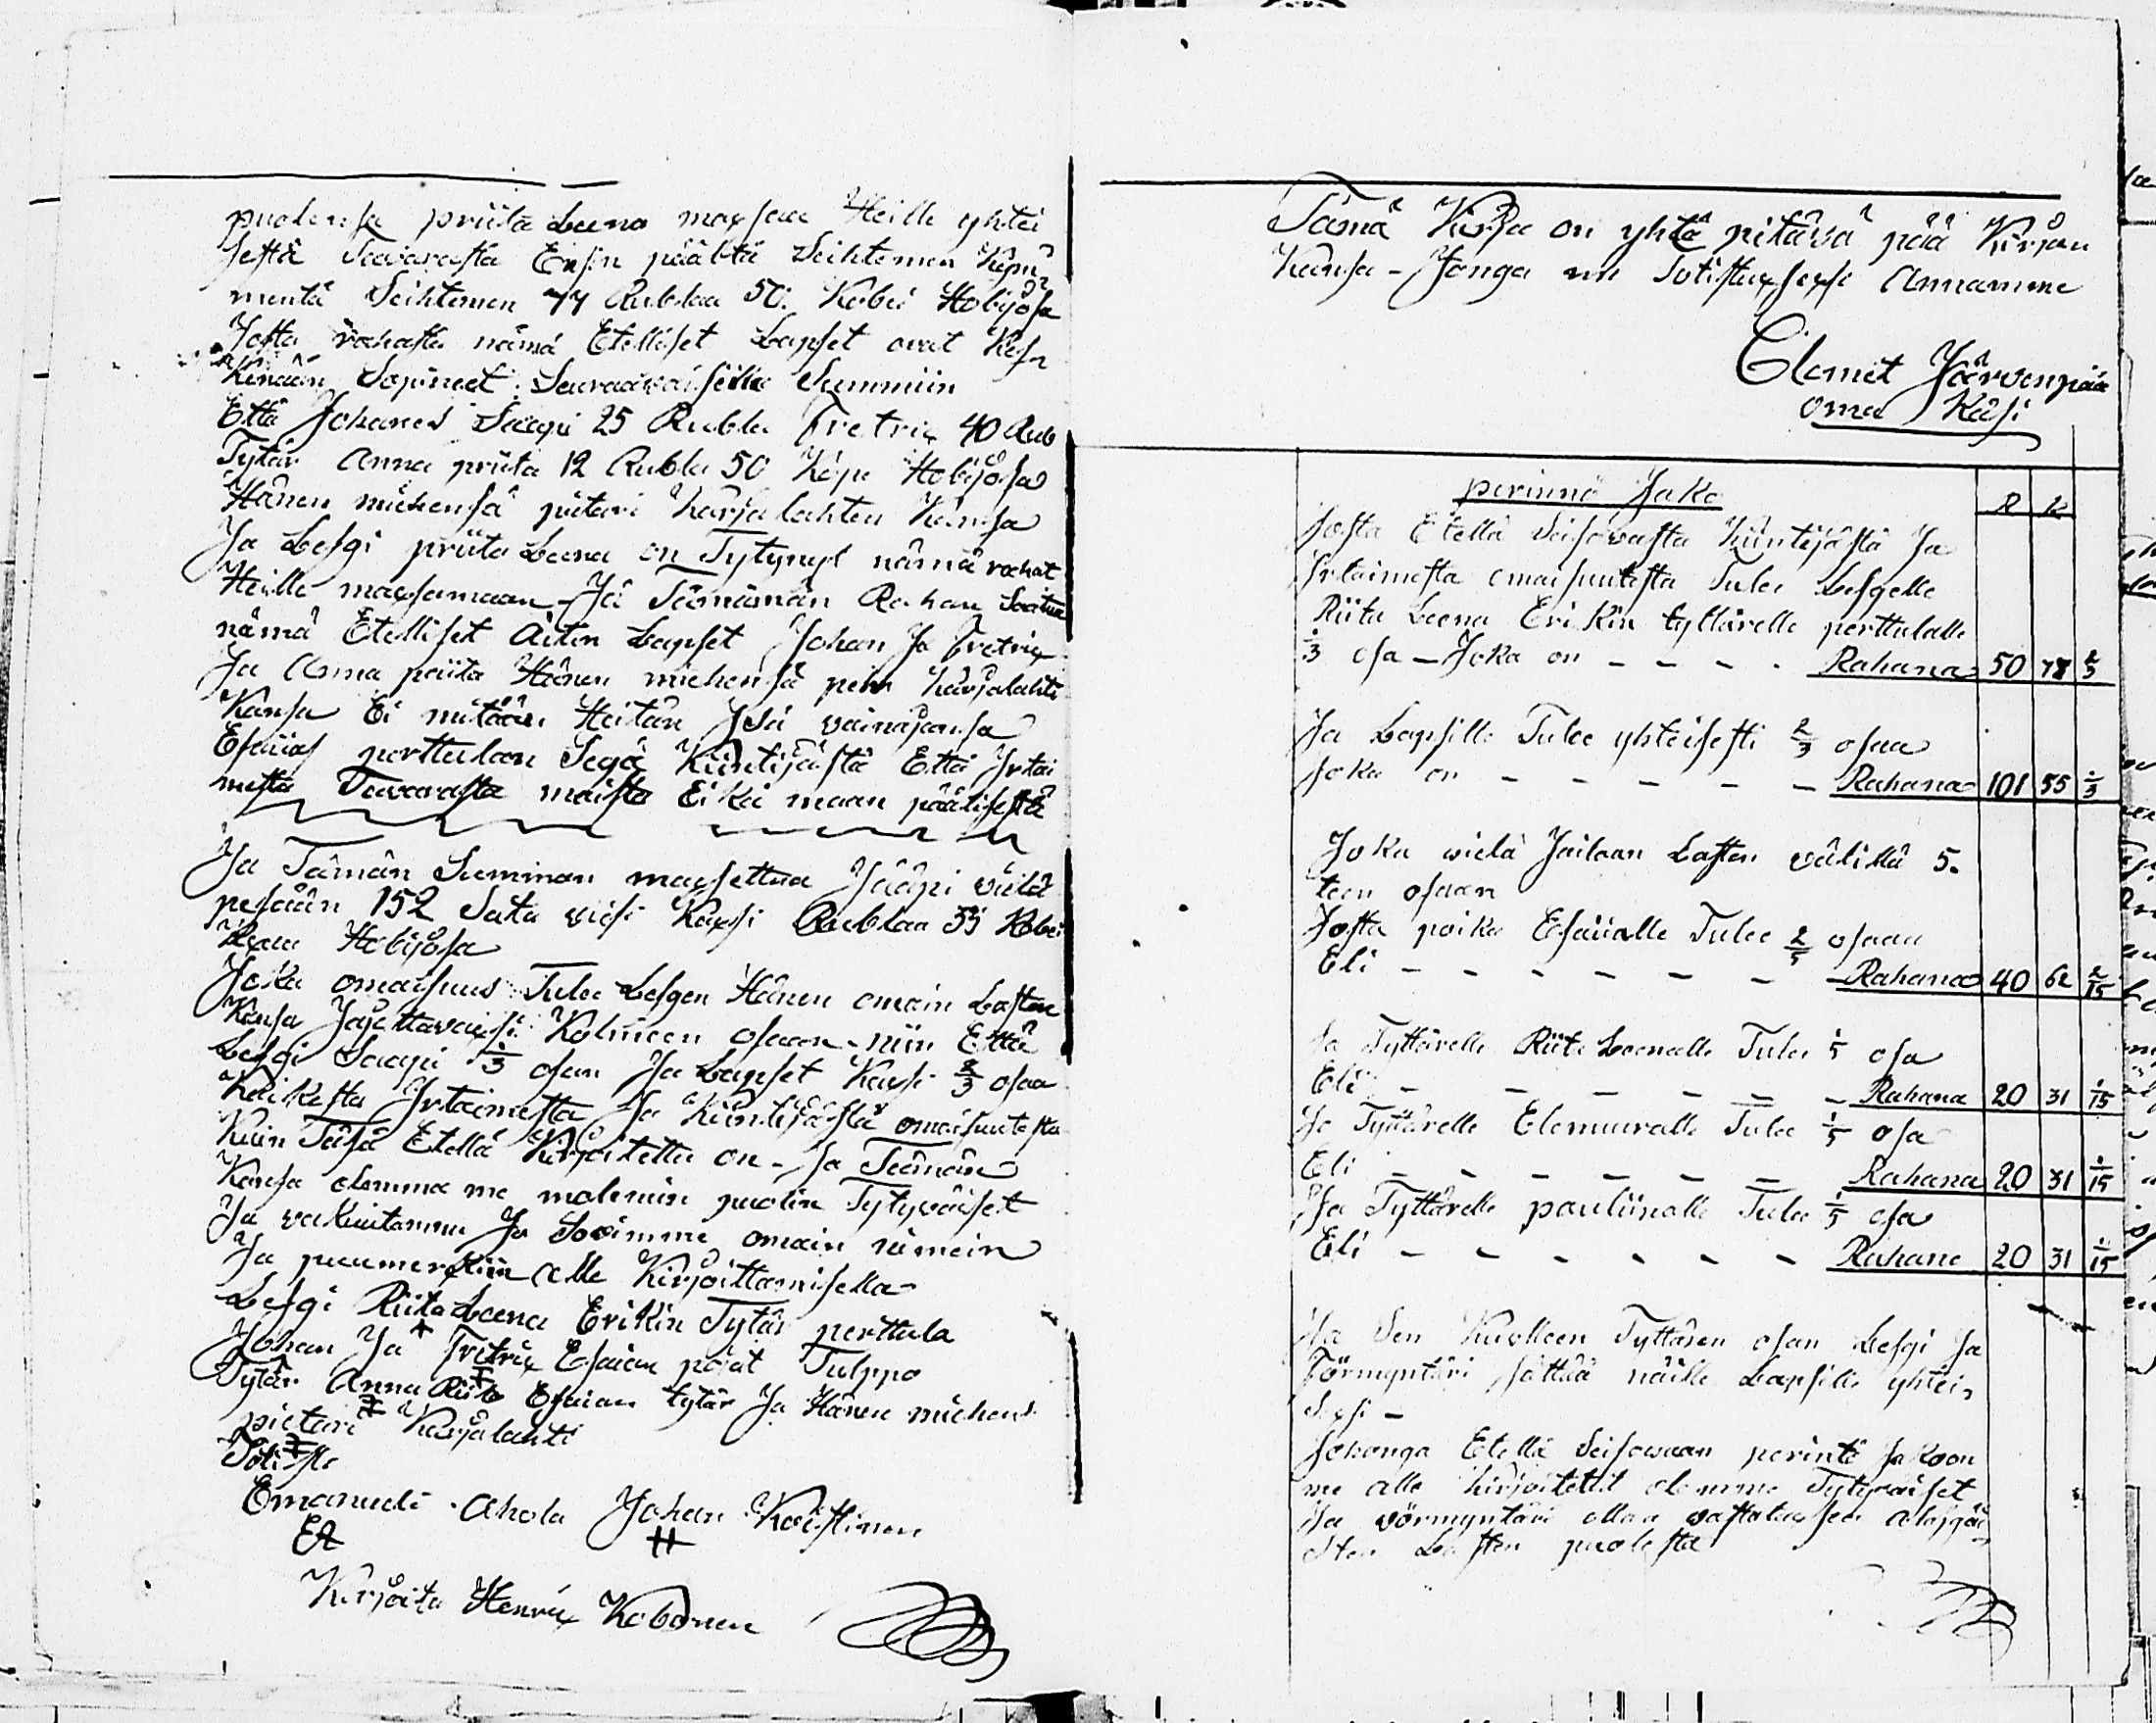 puolensa priita Leena maxsaa Heille yhtei
sestä Tavarasta Ensin päältä Seihtemen Kym
mentä Seihtemen 77 Rublaa 50. Kobei Hobijosa
Josta rahasta nämä Etelliset Lapset ovat Kes
kenään Sopineet Seuraavaiseita Summiin
Että Johanes Saapi 25 Rubla Fretrix 40 Rub
Tytär Anna priita 12 Rubla 50 Kop Hobijosa
Hänen miehensä pietari Karjalahten Kansa
Ja Lesgi priita Leena on Tytynyt nämä rahat
Heille maxsamaan - Ja Tämämän Rahan Saatua
nämä Etelliset Äitin Lapset Johan Ja Fretrix
Ja Anna priita Hänen miehensä petr Karjalahti
Kansa Ei mitään Heitän Isä vainajansa
Esaias perttulan Sekä Kiintijästä Että Irtai
mesta Tavarasta maista Eikä maan päälisestä
Ja Tämän Summan maxsettua Jääpi vielä
pesään 152 Sata viisi Kaxsi Rublaa 33 Kobei
Kaan Hobijosa
Joka omaisuus Tulee Lesgen Hänen omain Lasten
Kansa Jajettavaxsi Kolmeen osaan - niin Että
Lesgi Saapi 1/3 osan Ja Lapset Kaxsi 2/3 osaa
Kaikesta Irtaimesta Ja Kiintijästä omaisuutesta
Kuin Täsä Etellä Kirjoitettu on - Ja Tämän
Kansa olemma me molemin puolin Tytyväiset
Ja vakuitamme Ja Sovimme omain nimein
Ja puumerkiin alle Kirjoittamisella
Lesgi Riita Leena Erikin Tytär perttula
Johan Ja Fritrix Esaian pojat Tulppo
Tytär Anna Riita Esaian tytär Ja Hänen miehens
pietari Karjalahti
Totista
Emanueli Ahola Johan Koistinen
EA H
Kirjoita Henrix Kobonen
Tämä Kirja on yhtä pitävä pää Kirjan
Kansa - Jonga me Totistuxsexsi Annamme
Clemit Järvenpää
oma Käsi
perinnö Jako
R K
Josta Etellä Seisovasta Kiintijästä Ja
Irtaimesta omaisuutesta Tulee Lesgelle
Riita Leena Erikin tyttärelle perttulalle
1/3 osa - Joka on - - - - Rahana 50 78 2/3
Ja Lapsille Tulee yhteisesti 2/3 osaa
Joka on - - - - - Rahana 101 55 1/3
Joka vielä Jaitaan Lasten välillä 5.
teen osaan
Josta poika Esaiialle Tulee 2/5 osaan
Eli - - - - - - Rahana 40 62 2/15
Ja Tyttärelle Riita Leenalle Tulee 1/5 osa
Eli - - - - - Rahana 20 31 1/15
Ja Tyttärelle Elemuuralle Tulee 1/5 osa
Eli - - - - - Rahana 20 31 1/15
Ja Tyttärelle pauliinalle Tulee 1/5 osa
Eli - - - - - - Rahana 20 31 1/15
Ja Sen Kuolleen Tyttären osan Lesgi Ja
Förmyntäri Jättää näille Lapsille yhtei
sexsi -
Johonga Etellä Seisovaan perintö Jakoon
me alle kirjoitettit olemme Tytyväiset
Ja vörmyntäri ollaa vastatuxsen alajgäi
sten Lasten puolesta